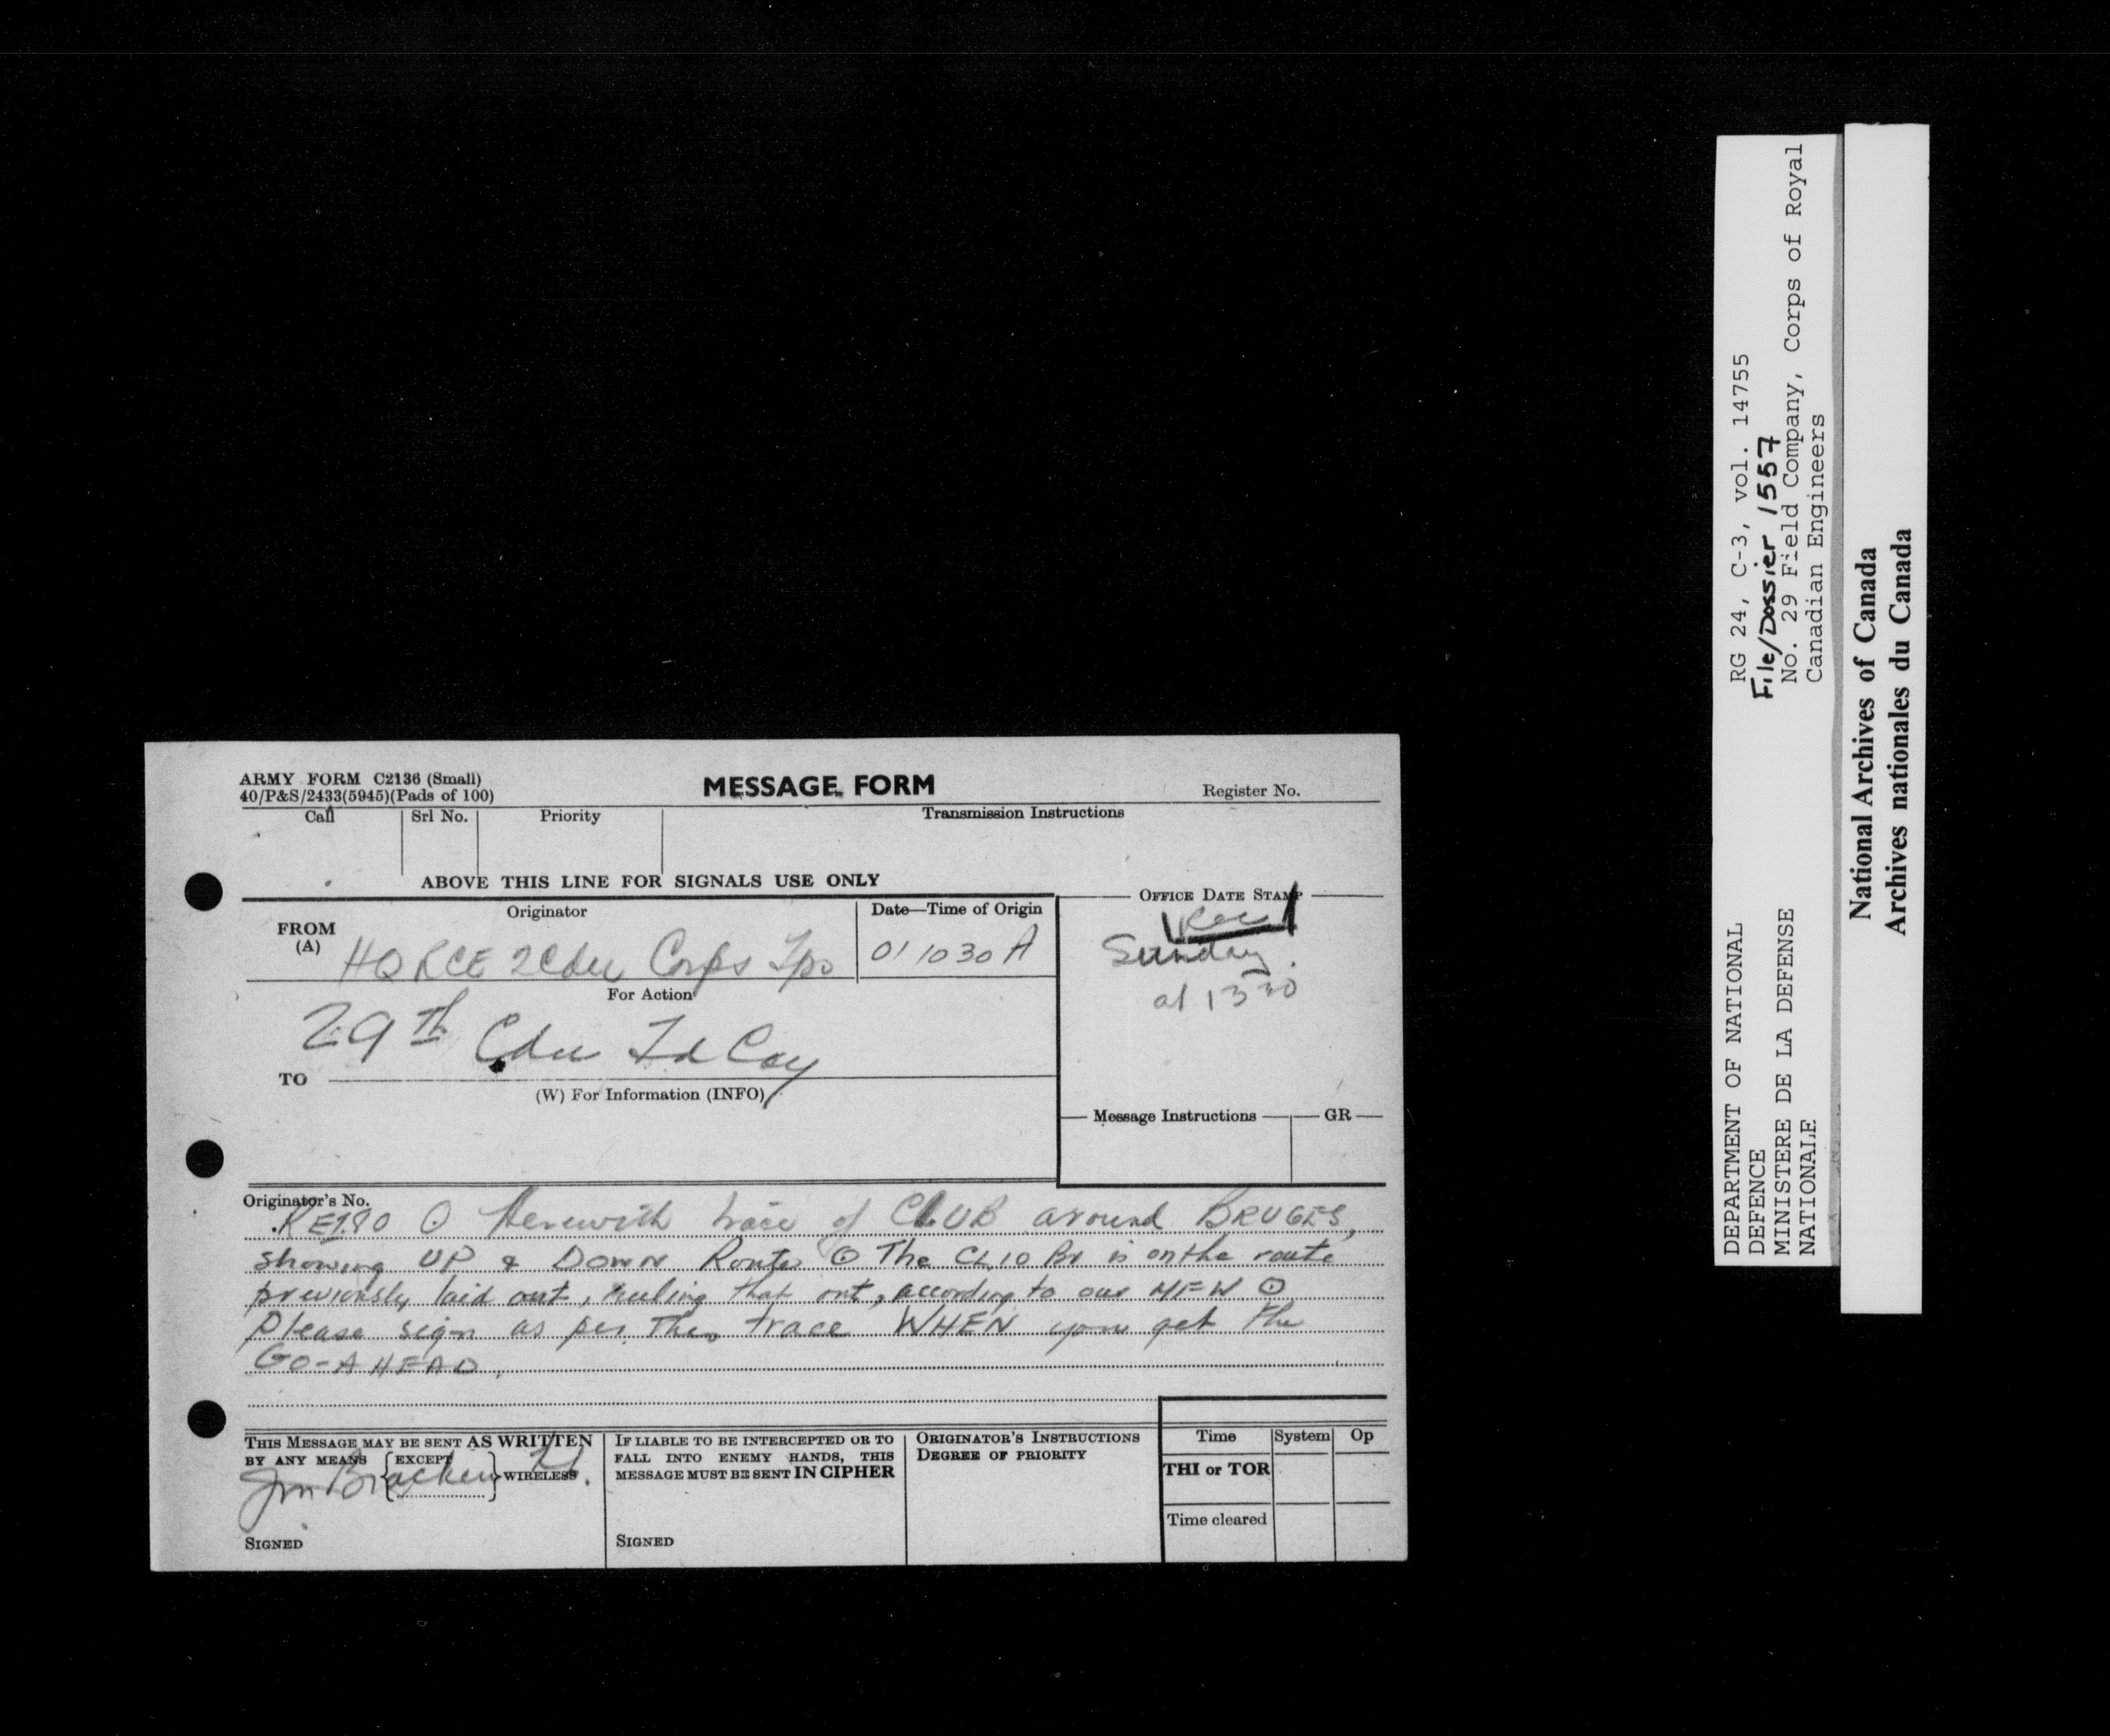 ARMY FORM C2136 (Small)
40/P&S/2433(5945)(Pads of 100)
MESSAGE FORM
Register No.
Call
Srl No.
Priority
Transmission Instructions
ABOVE THIS LINE FOR SIGNALS USE ONLY
FROM
(A)
Originator
HQ RCE 2 Cdn Corps Tps
Date—Time of Origin
011030A
OFFICE DATE STAMP
Rec
Sunday.
at 1330
For Action
29th Cdn Fd Coy
TO
(W) For Information (INFO)
Message Instructions
GR
Originator's No.
RE180 ⊙ Herewith trace of CLUB around BRUGES,
showing UP & DOWN Routes ⊙ The CL.10 Br is on the route
previously laid out, ruling that out, according to our ⊙
Please sign as per this trace WHEN you get the
GO-AHEAD.
THIS MESSAGE MAY BE SENT AS WRITTEN
BY ANY MEANS EXCEPT WIRELESS.
Jim Bracken
SIGNED
IF LIABLE TO BE INTERCEPTED OR TO
FALL INTO ENEMY HANDS, THIS
MESSAGE MUST BE SENT IN CIPHER
SIGNED
ORIGINATOR'S INSTRUCTIONS
DEGREE OF PRIORITY
Time
System
Op
THI or TOR
Time cleared
RG 24, C-3, vol. 14755
File/Dossier 1557
No. 29 Field Company, Corps of Royal
Canadian Engineers
DEPARTMENT OF NATIONAL
DEFENCE
MINISTERE DE LA DEFENSE
NATIONALE
National Archives of Canada
Archives nationales du Canada